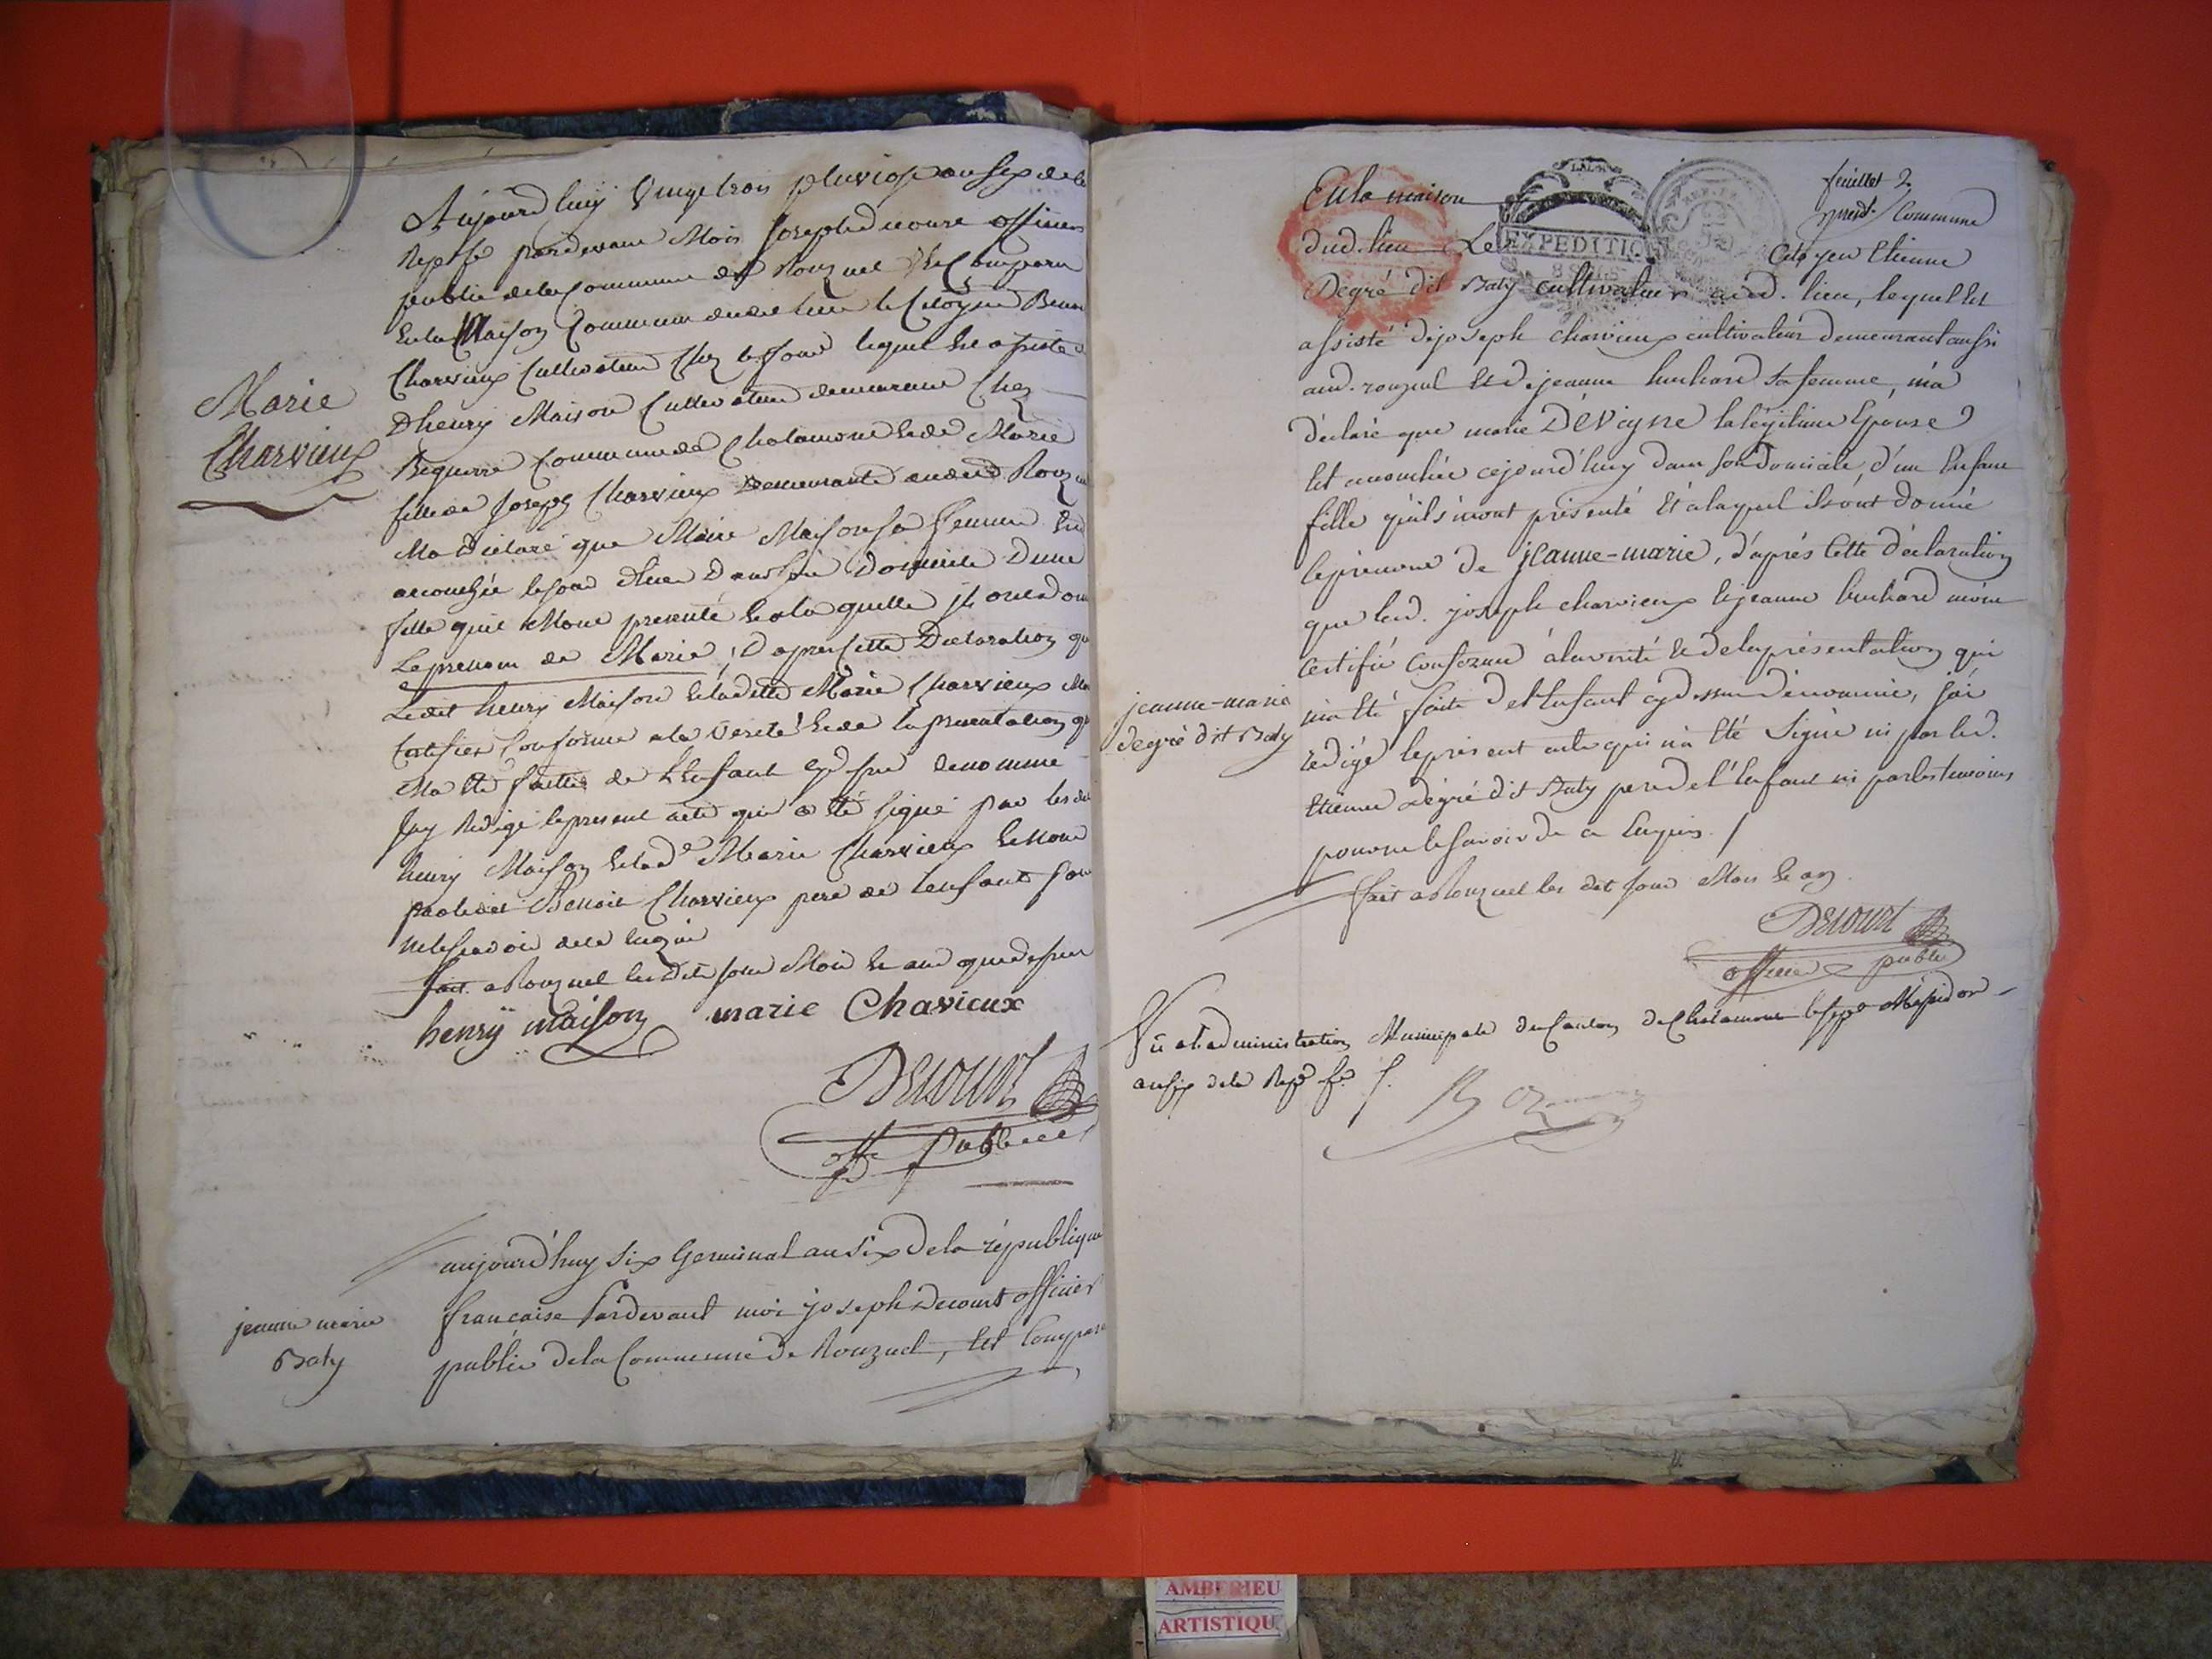 Marie
Charvieux
Aujourd'huy Vingt trois pluviose an six de la
Repfe pardevant Mois Joseph decourt officier
public de la Commune de Rouzuel Est Comparu
En la Maison Commune dudit lieu le Citoyen Benoit
Charvieux Cultivateur lequel Est assisté
D'henry Maison Cultivateur demeurant Chez
Commune de Chalamont Et de Marie
fille de Joseph Charvieux Demeurante audit Rouzuel
Ma Déclaré que Marie Maison sa Femme Est
accouchée dans son Domicile D'une
fille quil Mont presenté Et a la quelle ils ont donné
Le prenom de Marie, D'apres Cette Declaration que
Ledit henry Maison Et ladite Marie Charvieux Mon
Certifier Conforme a la Verité Et de la presentation qui
Ma Eté faitte de L'Enfant cy dessus denommé
Jay Redigé le present acte qui a été signé par lesdits
henry Maison Et lade Marie Charvieux Et non
par ledit Benoit Charvieux pere de lenfant pour
ne le savoir de ce Enquis
fait a Rouzuel lesdits jour Mois Et an que dessus
henrÿ maison marie Chavieux
Decourt
offr Public
jeanne marie
Baty
aujourd'huy six Germinal an six De la république
francaise Pardevant moi joseph Decourt officier
public De la Commune De Rouzuel, Est Comparu
feuillet 2
En la maison Commune
EXPEDITION
dud. lieu Le Citoyen Etienne
Degré dit Baty cultivateur aud. lieu, lequel Est
assisté de joseph charvieux cultivateur demeurant aussi
aud. rouzuel Et De jeanne buchard sa femme, m'a
déclaré que marie DEVigne sa légitime Epouse
Est accouchée cejourd'huy dans son Domicile, d'un Enfant
fille qu'ils m'ont présenté Et a laquel ils ont Donné
le prenome De jeanne-marie, d'aprés Cette déclaration
que led. joseph charvieux Et jeanne buchard m'ont
Certifié Conforme à la verité Et de la présentation qui
m'a Eté faite De l'Enfant cy dessus Dénommé, j'ai
rédigé le présent acte qui n'a Eté Signé ni par led.
Etienne degré dit Baty pere de l'Enfant ni par les temoins
pour ne le savoir De ce Enquis. /
jeanne-marie
degré dit Baty
fait a Rouzuel les dit jour Mois Et an.
Decourt
officier public
Vu a l'administration Municipale du Canton de Chalamont le Messidor
an six de la Repe fse
AMBERIEU
ARTISTIQU